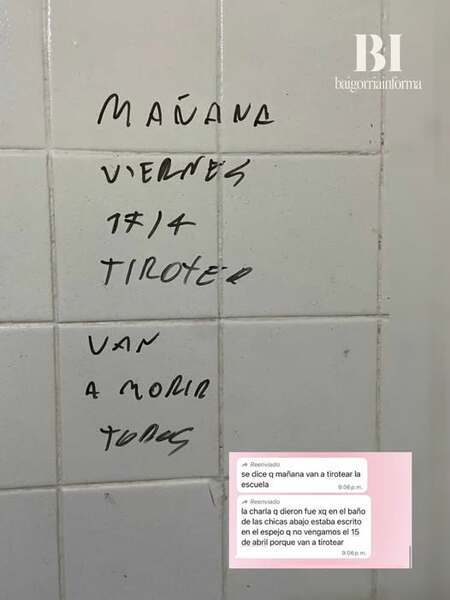 BI
baigorriainforma
MAÑANA
VIERNES
17/4
TIROTEO
VAN
A MORIR
TODOS
Reenviado
se dice q mañana van a tirotear la
escuela
9:06 p.m.
Reenviado
la charla q dieron fue xq en el baño
de las chicas abajo estaba escrito
en el espejo q no vengamos el 15
de abril porque van a tirotear
9:06 p.m.